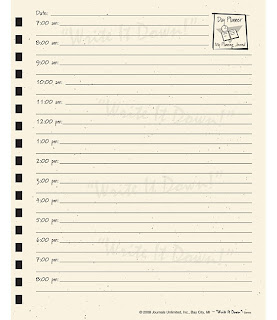 Date:
Day Planner
My Planning Journal
7:00 am
8:00 am
"Write It Down!"
9:00 am
10:00 am
11:00 am
"Write It Down!"
12:00 pm
1:00 pm
2:00 pm
3:00 pm
"Write It Down!"
4:00 pm
5:00 pm
6:00 pm
"Write It Down!"
7:00 pm
8:00 pm
© 2008 Journals Unlimited, Inc., Bay City, MI ~ "Write It Down"